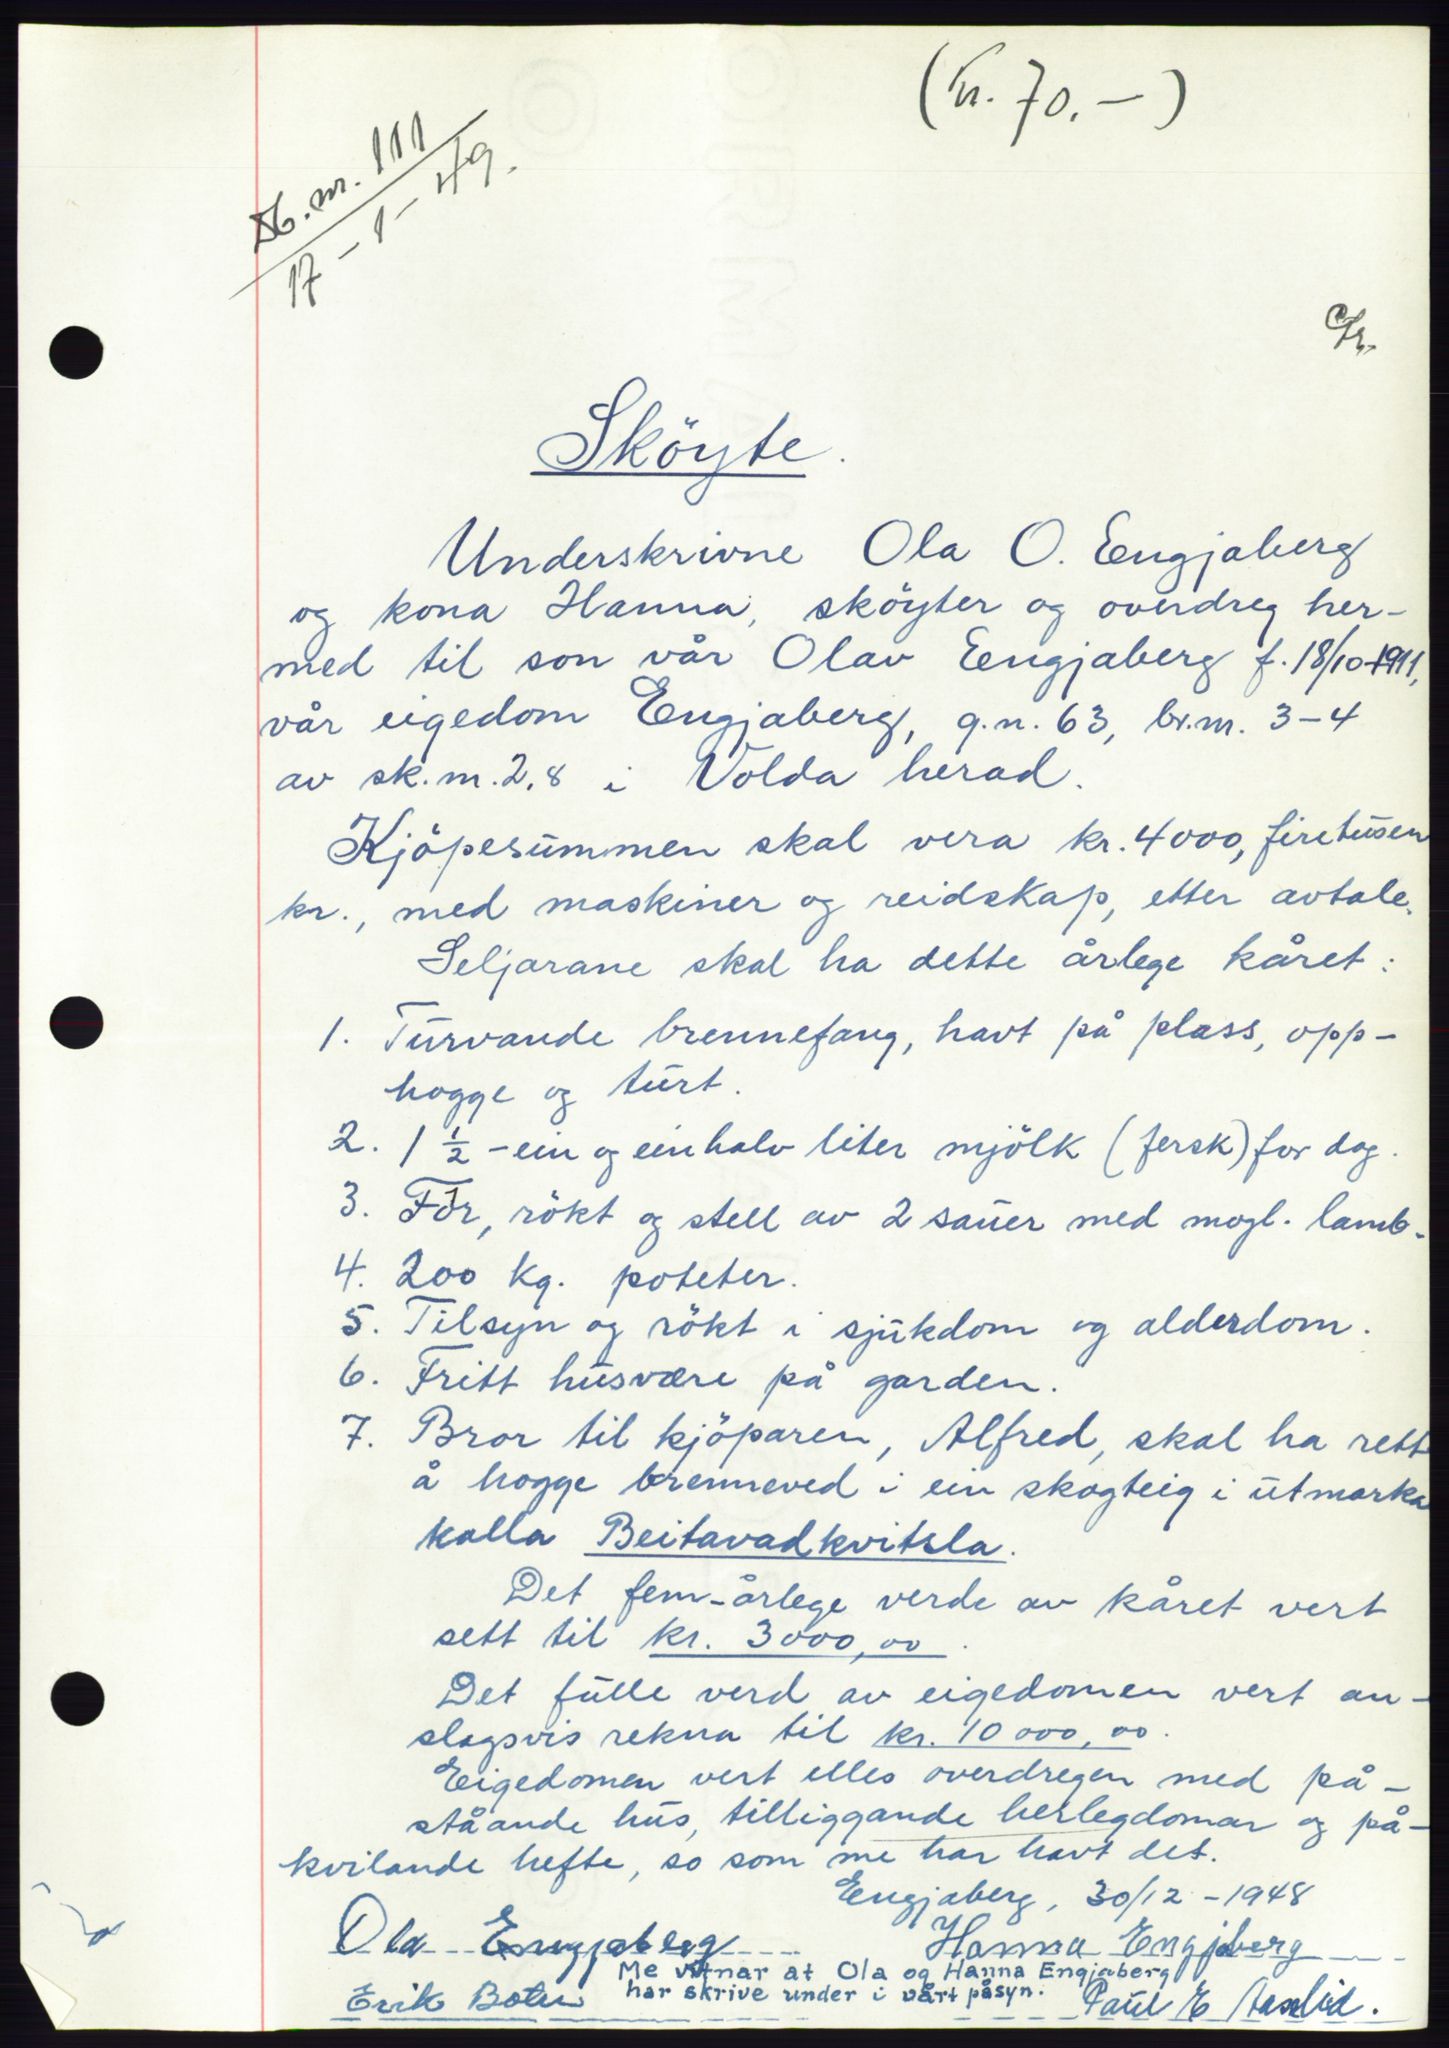 (Kr. 70.–)
Db. nr. 111
17 – 1 – 49.
Sköyte.
Underskrivne Ola O. Engjaberg
og kona Hanna, sköyter og overdreg her-
med til son vår Olav Engjaberg f. 18/10-1911,
vår eigedom Engjaberg, g.n. 63, br.nr. 3-4
av sk.m. 2,8 i Volda herad.
Kjöpesummen skal vera kr. 4000, firetusen
kr., med maskiner og reidskap, etter avtale.
Seljarane skal ha dette årlege kåret:
1. Turvande brennefang, havt på plass, opp-
hogge og turt.
2. 1 1/2 - ein og einhalv liter mjölk (fersk) for dag.
3. Fôr, rökt og stell av 2 sauer med mogl. lamb.
4. 200 kg. poteter.
5. Tilsyn og rökt i sjukdom og alderdom.
6. Fritt husvære på garden.
7. Bror til kjöparen, Alfred, skal ha rett
å hogge brenneved i ein skogteig i utmarka
kalla Beitavadkvitsla.
Det fem-årlege verde av kåret vert
sett til kr. 3000,00.
Det fulle verd av eigedomen vert an-
slagsvis rekna til kr. 10 000,00.
Eigedomen vert elles overdregen med på-
ståande hus, tilliggande herlegdomar og på-
kvilande hefte, so som me har havt det.
Engjaberg, 30/12 - 1948
Ola Engjaberg Hanna Engjaberg
Me vitnar at Ola og Hanna Engjaberg
har skrive under i vårt påsyn.
Erik Paul E